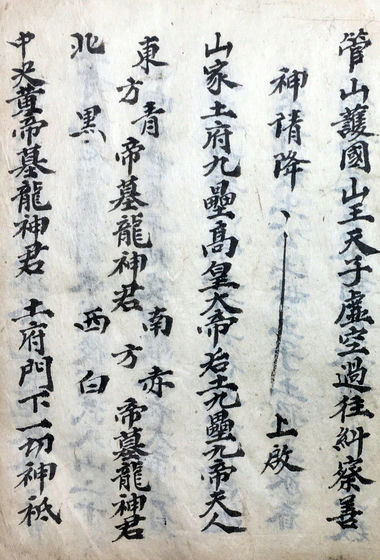 管山護國山王天子虛空過往糾察善
神請降、丨上啟
山家土府九壘高皇大帝后土九壘九帝夫人
東方青帝墓龍神君 南方赤帝墓龍神君
北黑 西白
中央黃帝墓龍神君 土府門下一切神祇